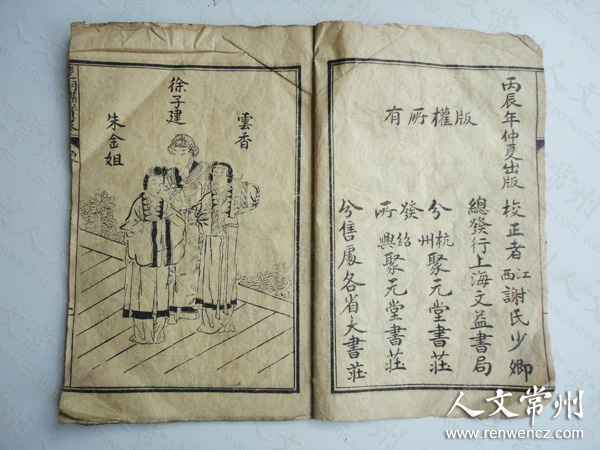 丙辰年仲夏出版
版權所有
校正者江西謝氏少卿
總發行上海文益書局
分發所
杭州聚元堂書莊
紹興聚元堂書莊
分售處各省大書莊
雲香
徐子建
朱金姐
人文常州
www.renwencz.com